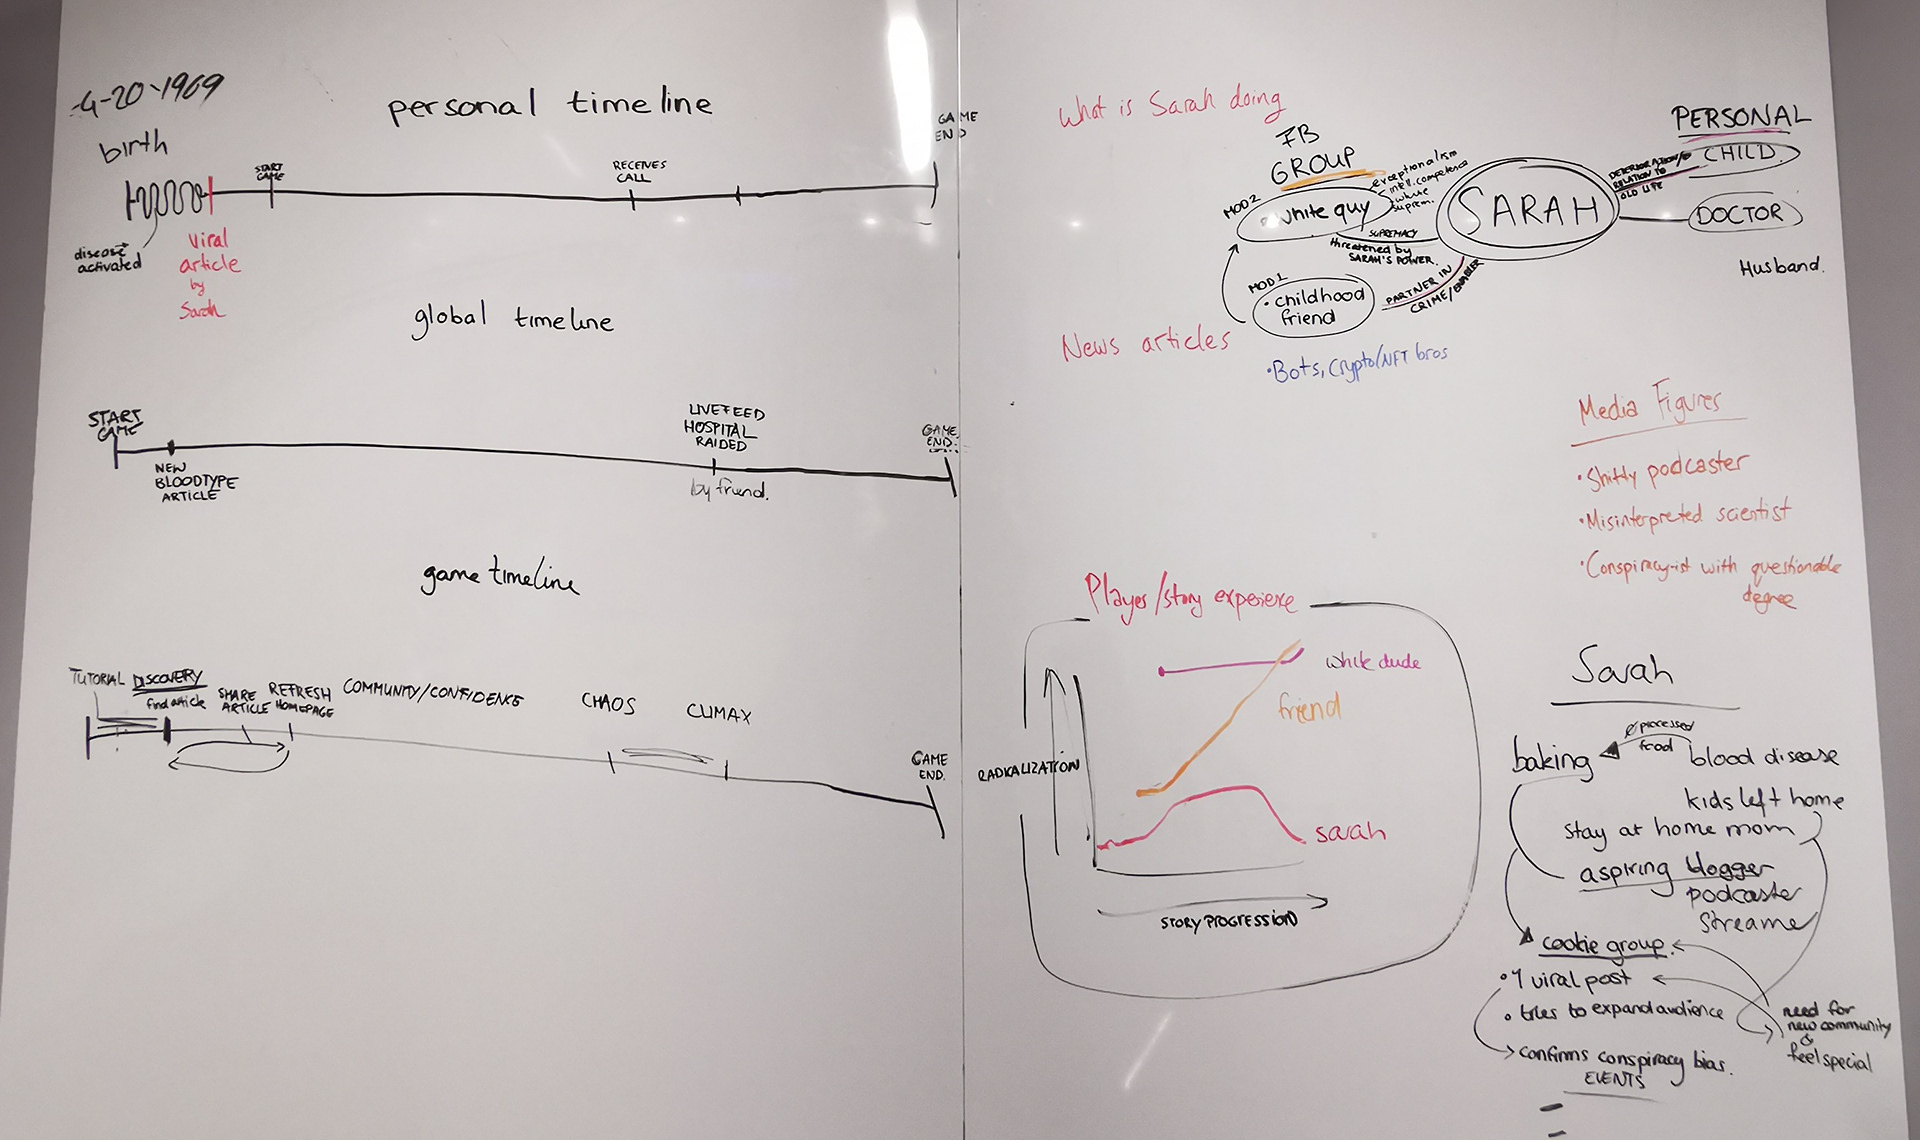 4-20-1969
personal timeline
birth
START
GAME
RECEIVES
CALL
GAME
END
disease
activated
Viral
article
by
Sarah
global timeline
START
GAME
NEW
BLOODTYPE
ARTICLE
LIVEFEED
HOSPITAL
RAIDED
by friend.
GAME
END.
game timeline
TUTORIAL
DISCOVERY
find article
SHARE
ARTICLE
REFRESH
HOMEPAGE
COMMUNITY/CONFIDENCE
CHAOS
CLIMAX
GAME
END.
What is Sarah doing
FB
GROUP
MOD2
white guy
exceptionalism
intell. competence
white
suprem.
SUPREMACY
threatened by
SARAH'S POWER.
MOD1
• childhood
friend
PARTNER IN
CRIME/ENABLER
SARAH
PERSONAL
DETERIORATION/
RELATION TO
OLD LIFE
CHILD.
DOCTOR
Husband.
News articles
• Bots, Crypto/NFT bros
Media Figures
• Shitty podcaster
• Misinterpreted scientist
• Conspiracy-ist with questionable
degree
Player/story experiexe
RADICALIZATION
white dude
friend
sarah
STORY PROGRESSION
Sarah
processed
food
baking
blood disease
kids left home
stay at home mom
aspiring blogger
podcaster
streamer
cookie group.
• 1 viral post
• tries to expand audience
confirms conspiracy bias.
EVENTS
need for
new community
&
feel special